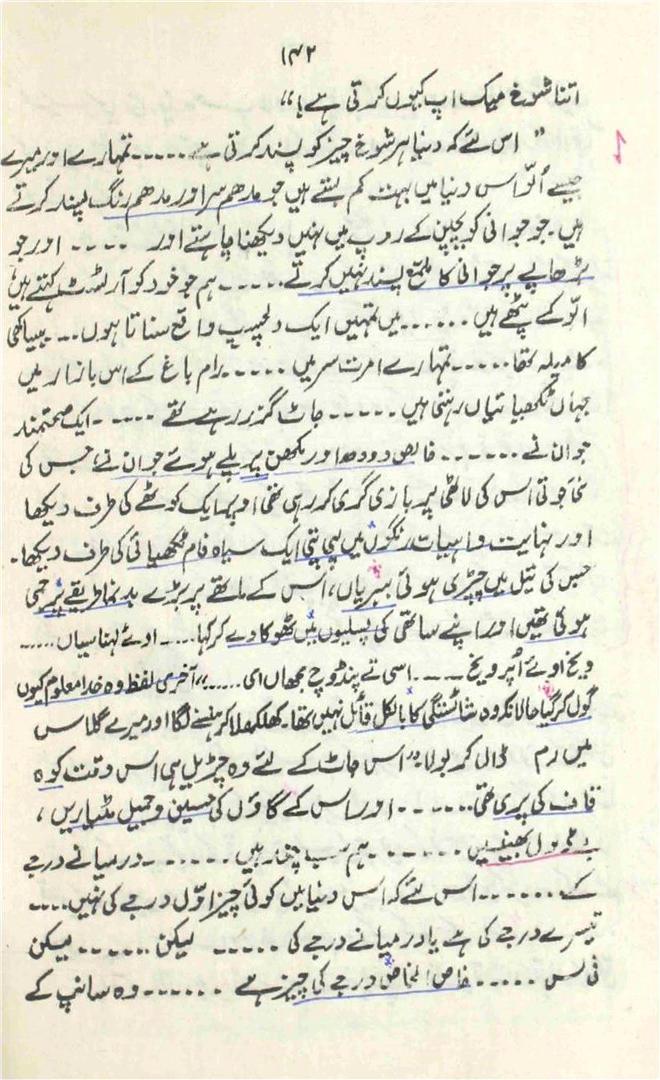 ۱۴۲
اتنا شوخ میک اپ کیوں کرتی ہے؟"
"اس لئے کہ دنیا ہر شوخ چیز کو پسند کرتی ہے۔۔۔۔۔ تمہارے اور میرے
جیسے اُلّو اس دنیا میں بہت کم بستے ہیں جو مدھم سر اور مدھم رنگ پسند کرتے
ہیں۔ جو جوانی کو بچپن کے روپ میں نہیں دیکھنا چاہتے اور ۔۔۔۔ اور جو
بڑھاپے پر جوانی کا ملمّع پسند نہیں کرتے۔۔۔۔۔ ہم جو خود کو آرٹسٹ کہتے ہیں
الّو کے پٹھے ہیں ۔۔۔۔۔۔ میں تمہیں ایک دلچسپ واقع سناتا ہوں۔۔۔ بیساکھی
کا میلہ تھا۔۔۔۔۔ تمہارے امرت سر میں ۔۔۔۔۔ رام باغ کے اس بازار میں
جہاں ٹکھیائیاں رہتی ہیں ۔۔۔۔۔ جاٹ گزر رہے تھے ۔۔۔۔۔ ایک صحتمند
جوان نے ۔۔۔۔۔۔ خالص دودھ اور مکھن پر پلے ہوئے جوان نے، جس کی
نئی جوتی اس کی لاٹھی پر بازی گری کر رہی تھی اوپر ایک کوٹھے کی طرف دیکھا
اور نہایت واہیات رنگوں میں لپی پتی ایک سیاہ فام ٹکھیائی کی طرف دیکھا۔
جس کی تیل میں چپڑی ہوئی ببریاں، اس کے ماتھے پر بڑے بدنما طریقے پر جمی
ہوئی تھیں اور اپنے ساتھی کی پسلیوں میں ٹھوکا دے کر کہا۔۔۔۔ اوئے لہنا سیاں۔۔۔۔۔۔
ویخ اوئے اُپر ویخ ۔۔۔۔ اسی تے پنڈ وچ مجھاں ای۔۔۔۔۔۔" آخری لفظ وہ خدا معلوم کیوں
گول کر گیا حالانکہ وہ شائستگی کا بالکل قائل نہیں تھا۔ کھلکھلا کر ہنسنے لگا اور میرے گلاس
میں رم ڈال کر بولا۔ "اس جاٹ کے لئے وہ چڑیل ہی اس وقت کوہ
قاف کی پری تھی۔۔۔۔۔۔ اور اس کے گاؤں کی حسین و جمیل مٹیاریں،
بے ڈول بھینسیں ۔۔۔۔۔۔ ہم سب چغد ہیں ۔۔۔۔۔۔ درمیانے درجے
کے۔۔۔۔۔۔۔ اس لئے کہ اس دنیا میں کوئی چیز اوّل درجے کی نہیں۔۔۔۔
تیسرے درجے کی ہے یا درمیانے درجے کی ۔۔۔۔۔ لیکن ۔۔۔۔۔۔ لیکن
فی لس ۔۔۔۔۔ خاص الخاص درجے کی چیز ہے ۔۔۔۔۔۔ وہ سانپ کے